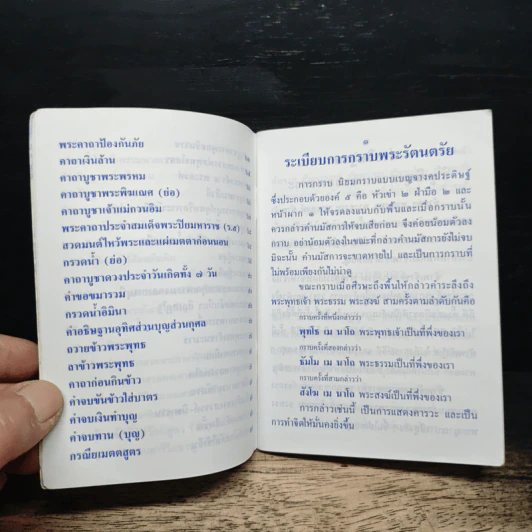 พระคาถาป้องกันภัย
คาถาเงินล้าน
คาถาบูชาพระพรหม
คาถาบูชาพระพิฆเณศ (ย่อ)
คาถาบูชาเจ้าแม่กวนอิม
พระคาถาประจำสมเด็จพระปิยมหาราช (ร.๕)
สวดมนต์ไหว้พระและแผ่เมตตาก่อนนอน
กรวดน้ำ (ย่อ)
คาถาบูชาดวงประจำวันเกิดทั้ง ๗ วัน
คำขอขมารวม
กรวดน้ำอิมินา
คำอธิษฐานอุทิศส่วนบุญส่วนกุศล
ถวายข้าวพระพุทธ
ลาข้าวพระพุทธ
คาถาก่อนกินข้าว
คำจบขันข้าวใส่บาตร
คำจบเงินทำบุญ
คำจบทาน (บุญ)
กรณียเมตตสูตร
ระเบียบการกราบพระรัตนตรัย
การกราบ นิยมกราบแบบเบญจางคประดิษฐ์
ซึ่งประกอบด้วยองค์ ๕ คือ หัวเข่า ๒ ฝ่ามือ ๒ และ
หน้าผาก ๑ ให้จรดลงแนบกับพื้นและเมื่อกราบนั้น
ควรกล่าวคำนมัสการให้จบเสียก่อน จึงค่อยน้อมตัวลง
กราบ อย่าน้อมตัวลงในขณะที่กล่าวคำนมัสการยังไม่จบ
มิฉะนั้น คำนมัสการจะขาดหายไป และเป็นการกราบที่
ไม่พร้อมเพียงกันไม่น่าดู
ขณะกราบเมื่อศีรษะถึงพื้นให้กล่าวคำระลึงถึง
พระพุทธเจ้า พระธรรม พระสงฆ์ สามครั้งตามลำดับกันคือ
กราบครั้งที่หนึ่งกล่าวว่า
พุทโธ เม นาโถ พระพุทธเจ้าเป็นที่พึ่งของเรา
กราบครั้งที่สองกล่าวว่า
ธัมโม เม นาโถ พระธรรมเป็นที่พึ่งของเรา
กราบครั้งที่สามกล่าวว่า
สังโฆ เม นาโถ พระสงฆ์เป็นที่พึ่งของเรา
การกล่าวเช่นนี้ เป็นการแสดงคารวะ และเป็น
การทำจิตให้มั่นคงยิ่งขึ้น